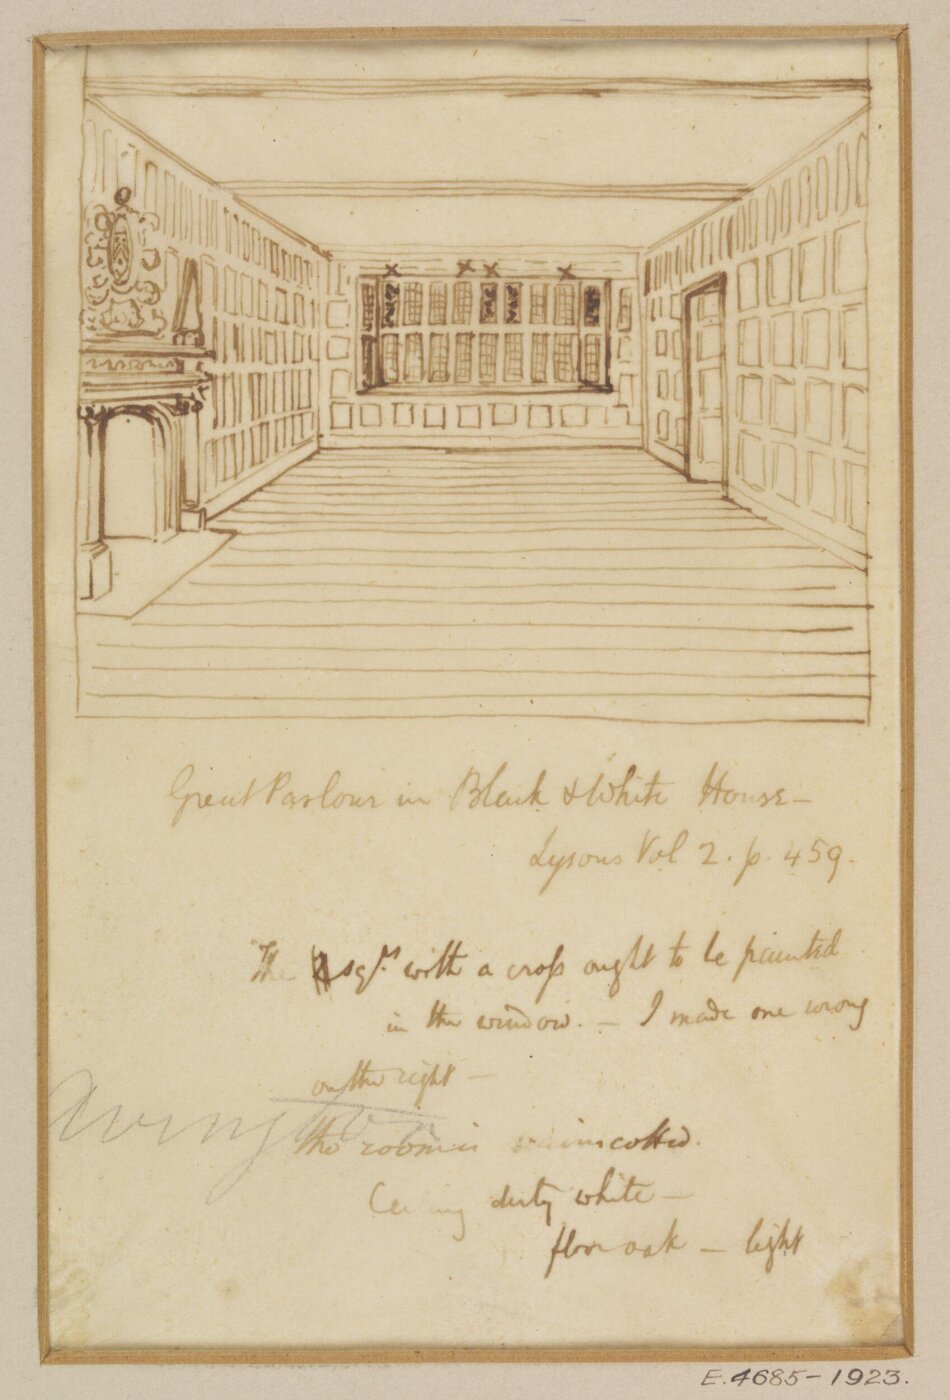 Great Parlour in Black & White House –
Lysons Vol 2. p. 459.
The sqrs with a cross ought to be painted
in the window. – I made one wrong
on the right –
the room is wainscotted.
Ceiling dirty white –
floor oak – light
Avington
E.4685–1923.